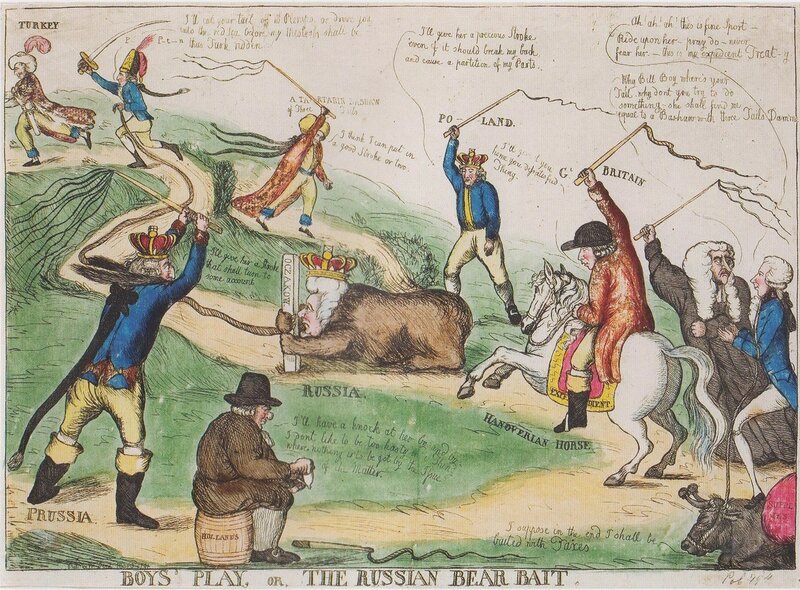 TURKEY
I'll cut your tail off
or drive you
into the red sea before my Mistress shall be
thus Turk ridden
P-t-n
I'll give her a precious Stroke
even if it should break my back
and cause a partition of my Parts.
Ah! ah! ah! this is fine Sport
Ride upon her - pray do - never
fear her - this is my expedient Treat-y
Why Bill Boy where's your
Tail why dont you try to do
something - she shall find me
equal to a Bashaw with three Tails Damme
A TARTARIAN BASHAW
of Three Tails
I think I can put in
a good Stroke or two.
POLAND.
I'll give you
Thing.
Gt BRITAIN
I'll give her a Stroke
that shall turn to
some account
OCZAKOW
RUSSIA.
HANOVERIAN HORSE.
I'll have a knock at her by and by
I dont like to be too hasty in
where nothing is to be got by the
of the Matter
PRUSSIA
HOLLANDS
I suppose in the end I shall be
baited with Taxes
BOYS' PLAY, OR, THE RUSSIAN BEAR BAIT.